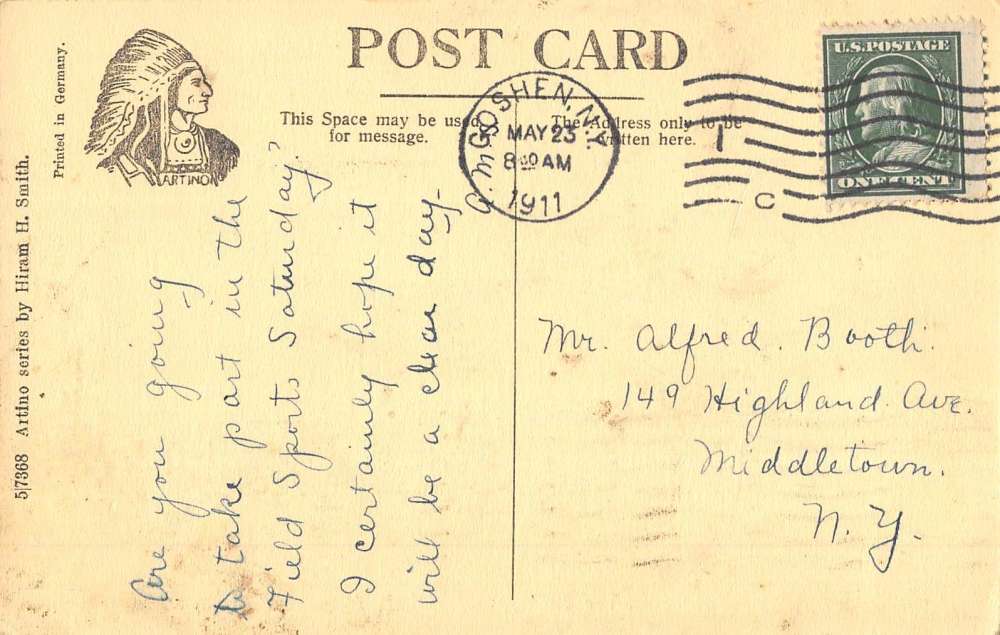 POST CARD
This Space may be used
for message.
The Address only to be
written here.
GOSHEN, N.Y.
MAY 23
8 30 AM
1911
1
C
U.S. POSTAGE
ONE CENT
ARTINO
Printed in Germany.
5|7368 Artino series by Hiram H. Smith.
Are you going
to take part in the
Field Sports Saturday?
I certainly hope it
will be a clear day-
Mr. Alfred. Booth.
149 Highland Ave.
Middletown.
N. Y.